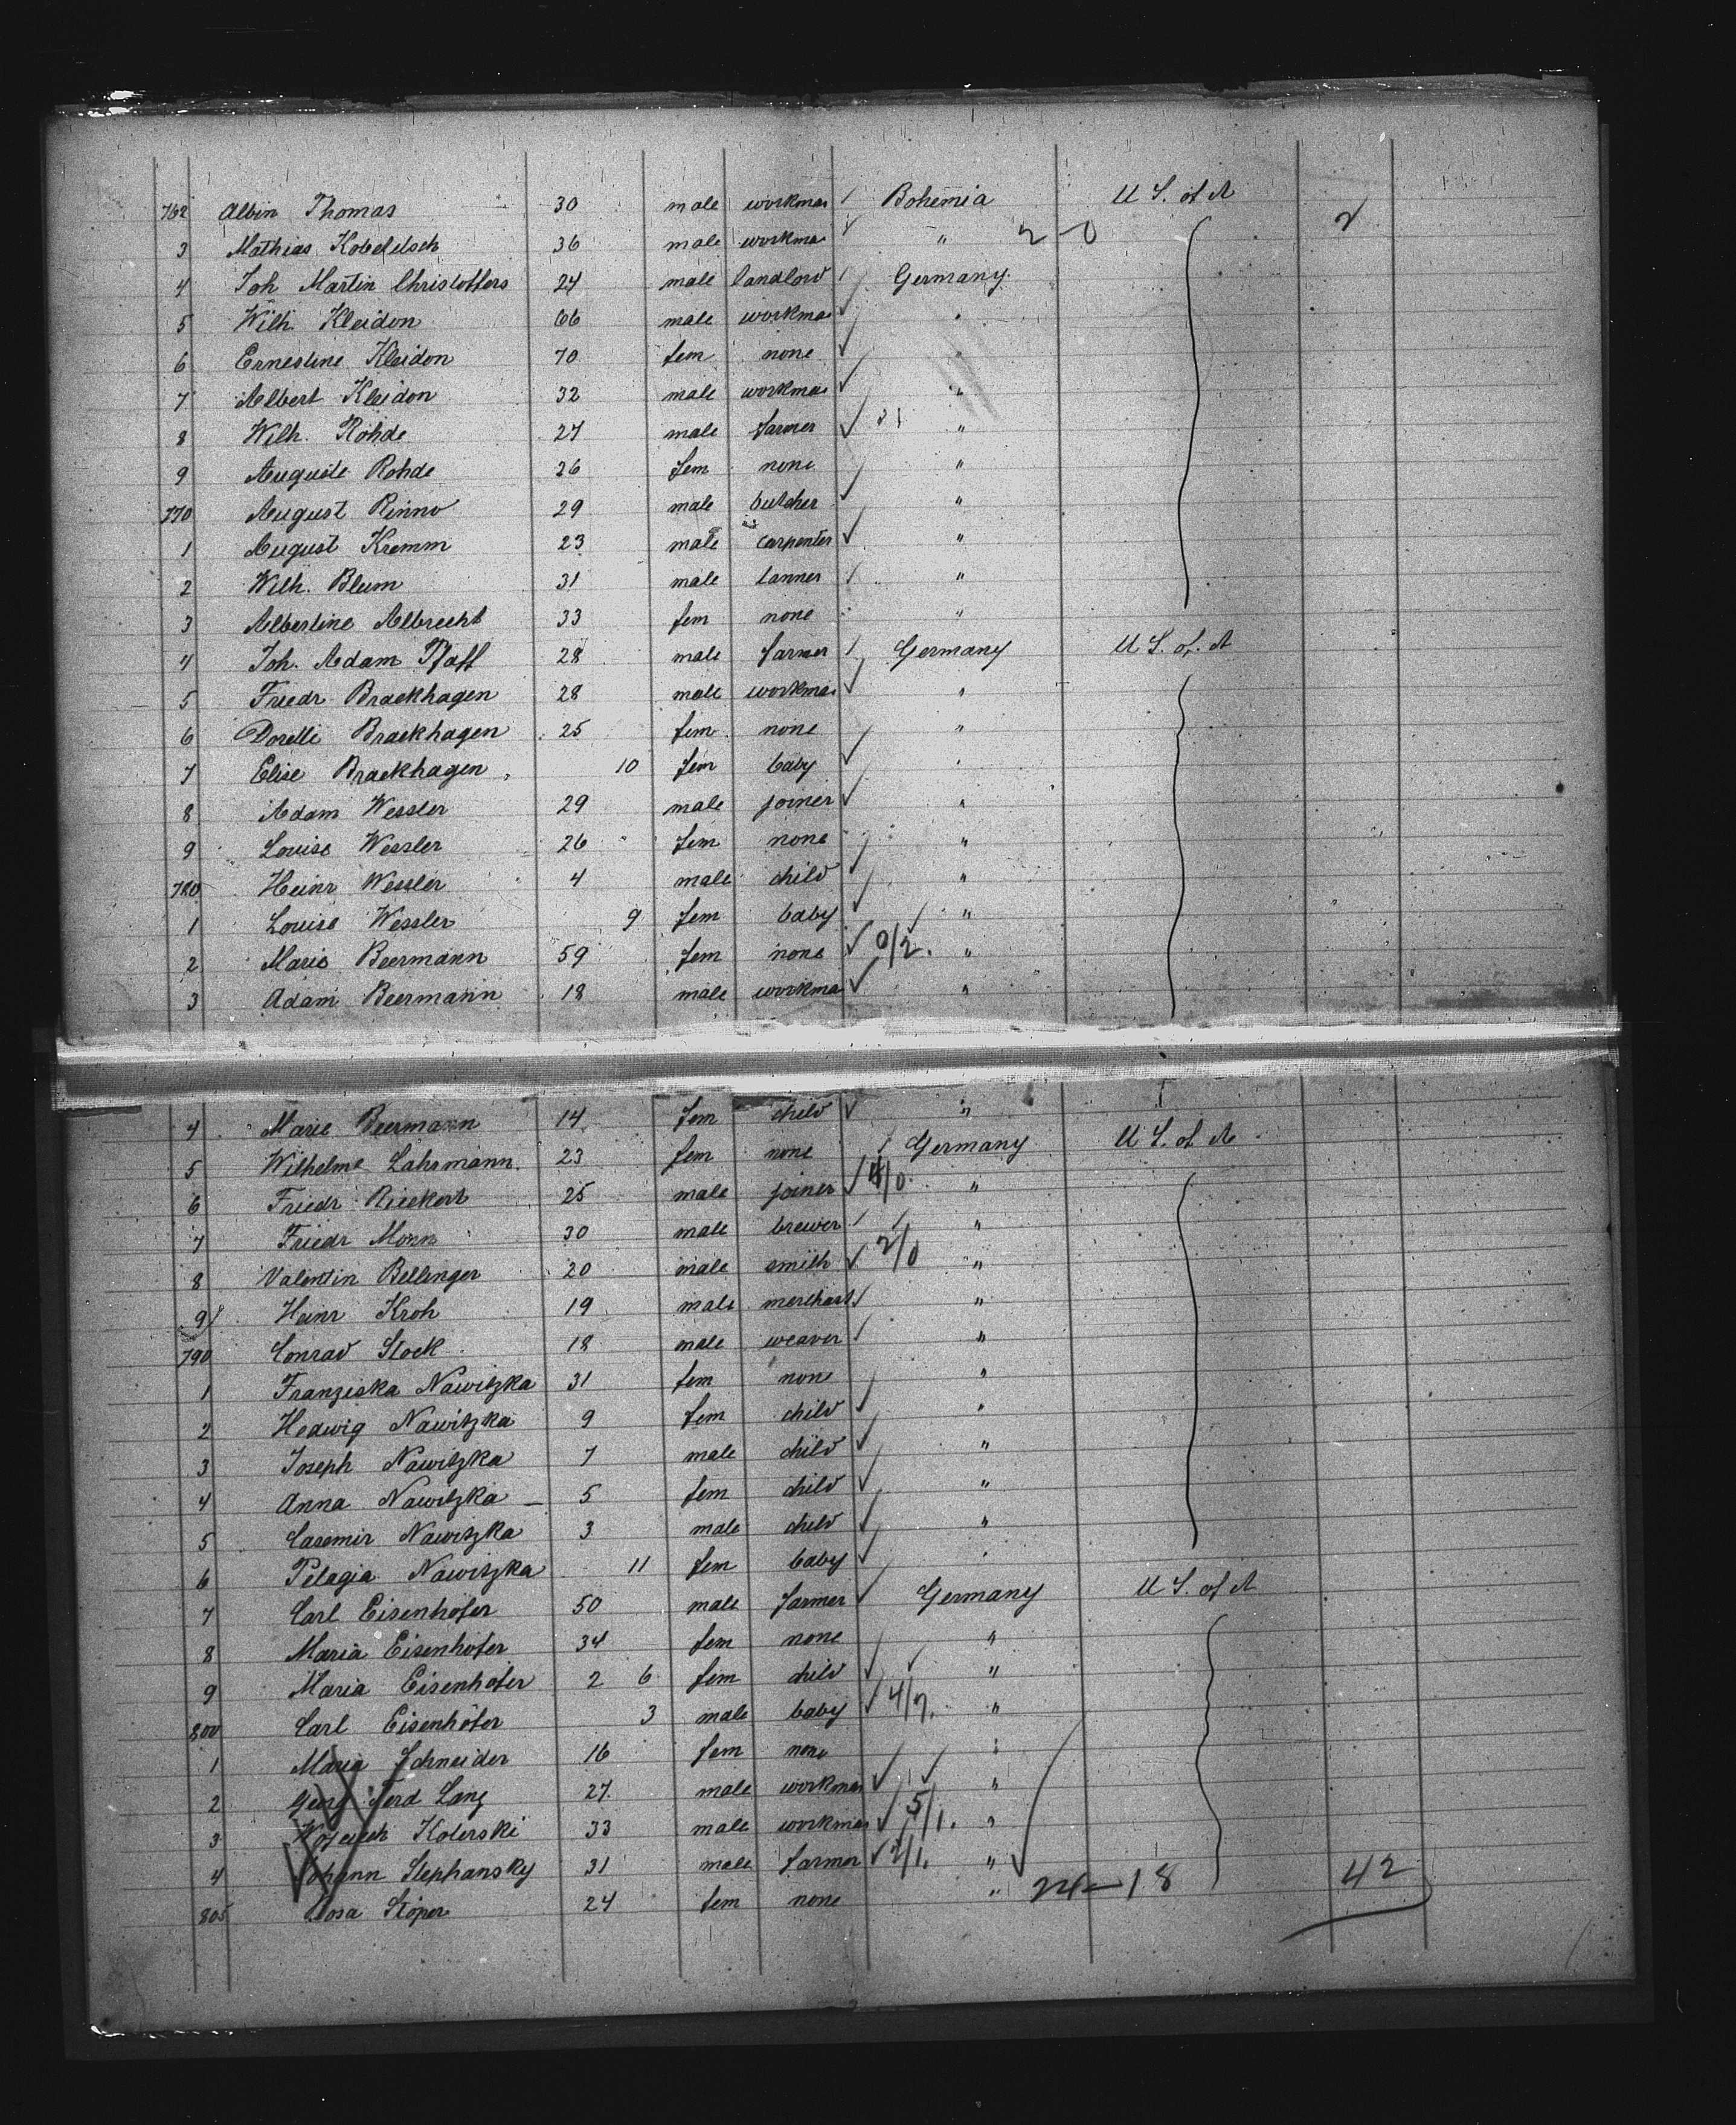 762 Albin Thomas 30 male workman Bohemia U S. of A
3 Mathias 36 male workman " 2-0 2
4 Joh Martin Christoffers 24 male landlord Germany
5 Wilh. Kleidon 66 male workman "
6 Ernestine Kleidon 70 fem none "
7 Albert Kleidon 32 male workman "
8 Wilh. Rohde 27 male farmer "
9 Auguste Rohde 26 fem none "
770 August Rinno 29 male butcher "
1 August Kremm 23 male carpenter "
2 Wilh. Blum 31 male tanner "
3 Albertine Albrecht 33 fem none "
4 Joh. Adam Pfaff 28 male farmer Germany U S. of. A
5 Friedr Brackhagen 28 male workman "
6 Dorette Brackhagen 25 fem none "
7 Elise Brackhagen 10 fem baby "
8 Adam Wessler 29 male joiner "
9 Louise Wessler 26 fem none "
780 Heinr Wessler 4 male child "
1 Louise Wessler 9 fem baby "
2 Marie Beermann 59 fem none 0/2. "
3 Adam Beermann 18 male workma "
4 Marie Beermann 14 fem child "
5 Wilhelme Lahrmann 23 fem none Germany U S. of A
6 Friedr Rieckert 25 male joiner 4/0 "
7 Friedr Monn 30 male brewer "
8 Valentin Bellinger 20 male smith 2/0 "
9 Heinr Kroh 19 male merchant "
790 Conrad Stock 18 male weaver "
1 Franziska Nawitzka 31 fem none "
2 Hedwig Nawitzka 9 fem child "
3 Joseph Nawitzka 7 male child "
4 Anna Nawitzka 5 fem child "
5 Casemir Nawitzka 3 male child "
6 Pelagia Nawitzka 11 fem baby "
7 Carl Eisenhofer 50 male farmer Germany U S. of A
8 Maria Eisenhofer 34 fem none "
9 Maria Eisenhofer 2 6 fem child "
800 Carl Eisenhofer 3 male baby 4/7. "
1 Maria Schneider 16 fem none "
2 Georg Ferd Lang 27. male workman "
3 Koterski 33 male workman 5/1. "
4 Johann Stephansky 31 male farmer 2/1. "
805 Rosa Köper 24 fem none " 24-18 42